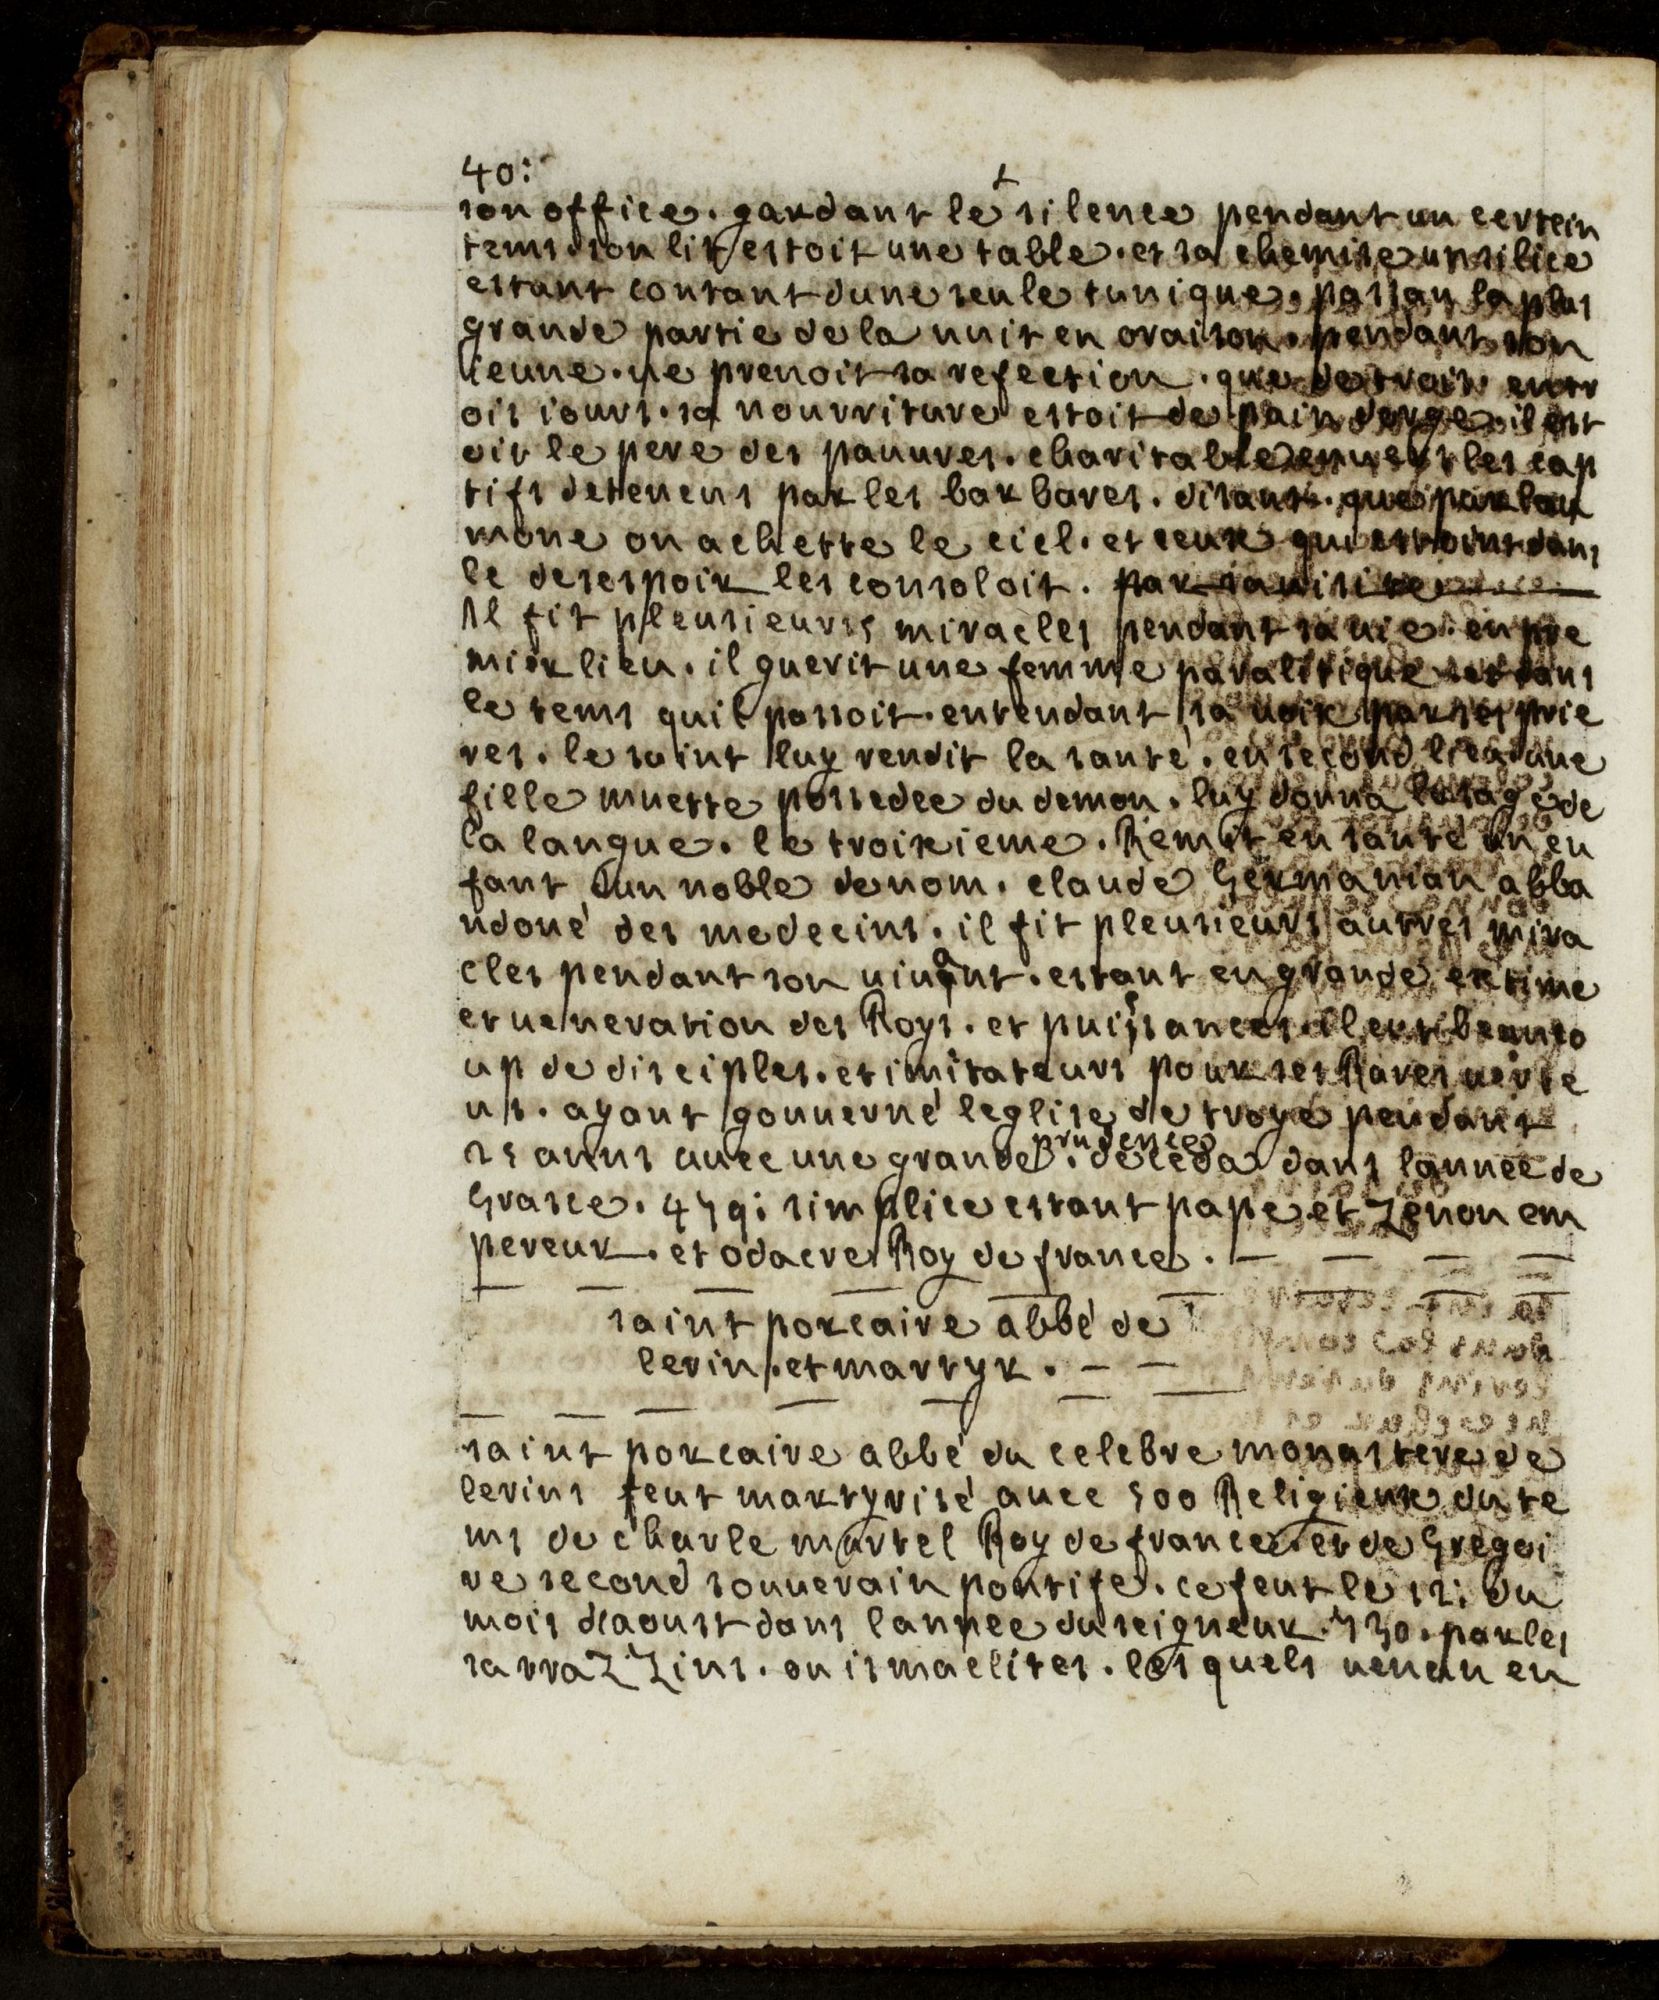 40:
son office. gardant le silence pendant un certein
tems. son lit estoit une table. et sa chemise un silice
estant contant dune seule tunique. passan la plus
grande partie de la nuit en oraison. pendant son
ieune. ne prenoit sa refection. que de trois entr
ois iours. sa nourriture estoit de pain dorge. il est
oit le pere des pauures. charitable enuers les cap
tifs detenens par les barbares. disant. que par lau
mone on achette le ciel. et ceux qui estoint dans
le desespoir les consoloit. par sa uisite
Il fit pleusieurs miracles pendant sa uie. en pre
mier lieu. il guerit une femme paralitique dans
le tems quil passoit. entendant sa uoix par ses prie
res. le saint luy rendit la santé. en second lieu une
fille muette possedee du demon. luy donna lusage de
la langue. le troixieme. Remit en santé un en
fant dun noble de nom. claude Germanian abba
ndoné des medecins. il fit pleusieurs autres mira
cles pendant son uiuant. estant en grande extime
et ueneration des Roys. et puissances. il eut beauco
up de disciples. et imitateurs pour ses Rares uerte
us. ayant gouuerné leglise de troye pendant
25 anns auec une grande prudence. deceda dans lannee de
Grasce. 479: simplice estant pape et Zenon em
pereur. et odacre Roy de france.
saint porcaire abbé de
lerin. et martyr.
saint porcaire abbé du celebre monastere de
lerins feut martyrisé auec 500 Religieux du te
ms de charle martel Roy de france. et de Gregoi
re second souuerain pontife. ce feut le 12: du
mois daoust dans lannee du seigneur. 730. par les
sarraZZins. ou ismaelites. lesquels uenan en